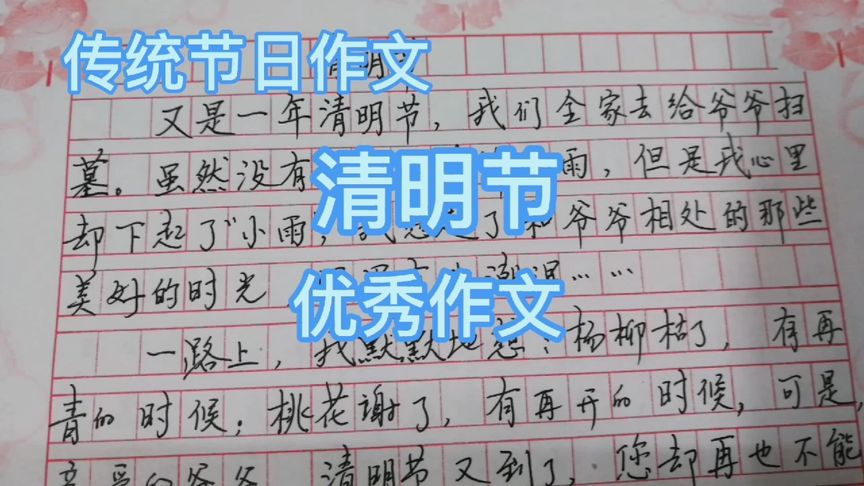 传统节日作文
又是一年清明节，我们全家去给爷爷扫
墓。虽然没有雨，但是我心里
清明节
却下起了“小雨，了和爷爷相处的那些
美好的时光……
优秀作文
一路上，我默默地想：杨柳枯了，有再
青的时候；桃花谢了，有再开的时候，可是，
清明节又到了，您却再也不能